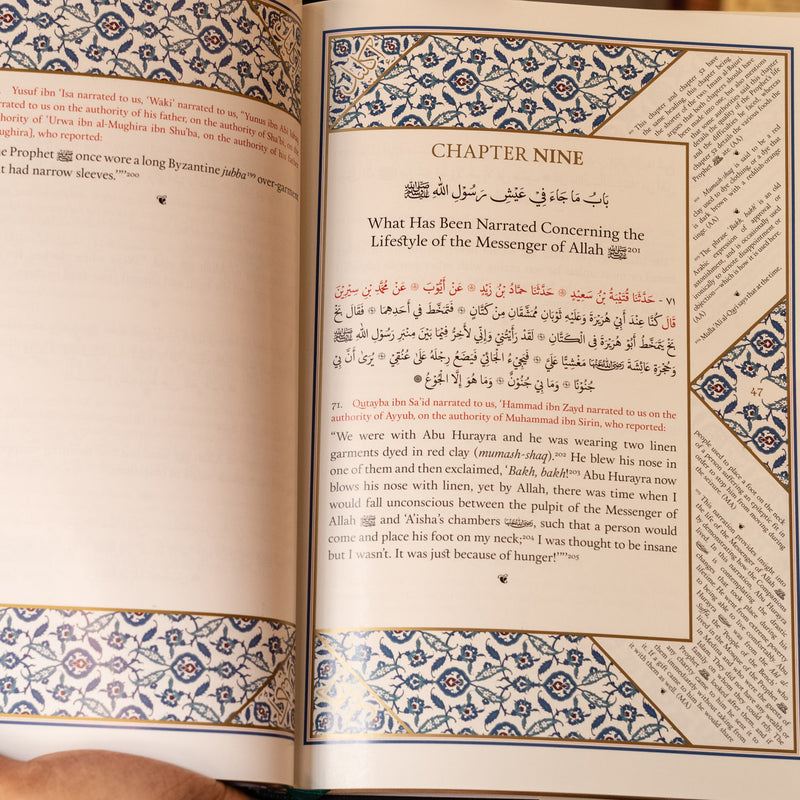 Yusuf ibn ʿIsa narrated to us, ʿWakiʿ narrated to us, “Yunus ibn Abi Ishaq
narrated to us on the authority of his father, on the authority of Shaʿbi, on the
authority of ʿUrwa ibn al-Mughira ibn Shuʿba, on the authority of his father
Mughira], who reported:
Prophet ﷺ once wore a long Byzantine jubba¹⁹⁹ over-garment
had narrow sleeves.”’”²⁰⁰
CHAPTER NINE
بَابُ مَا جَاءَ فِيْ عَيْشِ رَسُوْلِ اللهِ ﷺ
What Has Been Narrated Concerning the
Lifestyle of the Messenger of Allah ﷺ²⁰¹
٧١ - حَدَّثَنَا قُتَيْبَةُ بْنُ سَعِيْدٍ ۞ حَدَّثَنَا حَمَّادُ بْنُ زَيْدٍ ۞ عَنْ أَيُّوْبَ ۞ عَنْ مُحَمَّدِ بْنِ سِيْرِيْنَ
قَالَ كُنَّا عِنْدَ أَبِيْ هُرَيْرَةَ وَعَلَيْهِ ثَوْبَانِ مُمَشَّقَانِ مِنْ كَتَّانٍ ۞ فَتَمَخَّطَ فِيْ أَحَدِهِمَا ۞ فَقَالَ بَخْ
بَخْ يَتَمَخَّطُ أَبُوْ هُرَيْرَةَ فِي الْكَتَّانِ ۞ لَقَدْ رَأَيْتُنِيْ وَإِنِّيْ لَأَخِرُّ فِيْمَا بَيْنَ مِنْبَرِ رَسُوْلِ اللهِ ﷺ
وَحُجْرَةِ عَائِشَةَ مَغْشِيًّا عَلَيَّ ۞ فَيَجِيْءُ الْجَائِيْ فَيَضَعُ رِجْلَهُ عَلَىٰ عُنُقِيْ ۞ يُرَىٰ أَنَّ بِيْ
جُنُوْنًا ۞ وَمَا بِيْ جُنُوْنٌ ۞ وَمَا هُوَ إِلَّا الْجُوْعُ ۞
71. Qutayba ibn Saʿid narrated to us, ʿHammad ibn Zayd narrated to us on the
authority of Ayyub, on the authority of Muhammad ibn Sirin, who reported:
“We were with Abu Hurayra and he was wearing two linen
garments dyed in red clay (mumash-shaq).²⁰² He blew his nose in
one of them and then exclaimed, ‘Bakh, bakh!²⁰³ Abu Hurayra now
blows his nose with linen, yet by Allah, there was time when I
would fall unconscious between the pulpit of the Messenger of
Allah ﷺ and ʿA’isha’s chambers, such that a person would
come and place his foot on my neck;²⁰⁴ I was thought to be insane
but I wasn’t. It was just because of hunger!’”’²⁰⁵
²⁰¹ This chapter and chapter 52 have
the same heading, this chapter being
the shorter of the two. Imam al-Bajuri
argues that both chapters should have
been made into one, but also mentions
chapter details the various foods the
Prophet ﷺ ate. (AA)
²⁰² Mumash-shaq is said to be a red
clay used to dye clothing, or a dye that
is dark brown with a reddish-orange
tinge. (AA)
²⁰³ The phrase ‘Bakh, bakh’ is an old
Arabic expression of approval or
astonishment, and is occasionally used
ironically to denote disappointment or
objection—which is how it is used here.
(AA)
²⁰⁴ Mulla ʿAli al-Qari says that at the time,
47
people used to place a foot on the neck
of a person suffering an epileptic fit in
order to stop him from moving during
the seizure. (MA)
²⁰⁵ This narration provides insight into
the life of the Messenger of Allah ﷺ